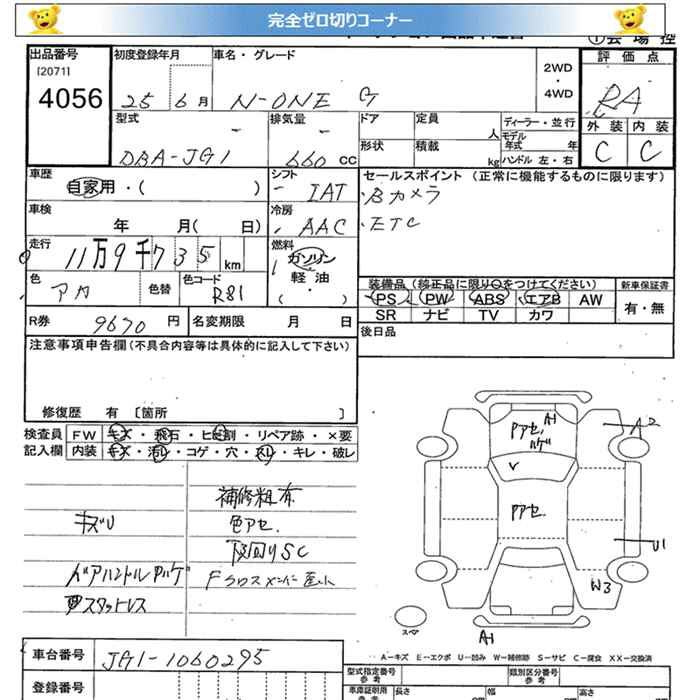 完全ゼロ切りコーナー
出品番号
[2071]
4056
初度登録年月
25 6月
車名・グレード
N-ONE G
2WD
・
4WD
評価点
RA
外装 内装
C C
型式
DBA-JG1
排気量
660 cc
ドア
定員
人
ディーラー・並行
モデル
年式 年
形状
積載
kg
ハンドル 左・右
車歴
自家用・( )
シフト
IAT
セールスポイント (正常に機能するものに限ります)
・Bカメラ
・ETC
車検
年 月( 日)
冷房
AAC
走行
11万9千735 km
燃料
ガソリン
軽油
( ・ )
色
アカ
色替
色コード
R81
装備品 (純正品に限り○をつけてください)
PS PW ABS エアB AW
SR ナビ TV カワ
新車保証書
有・無
R券 9670 円
名変期限 月 日
後日品
注意事項申告欄(不具合内容等は具体的に記入して下さい)
修復歴 有 〔箇所 〕
検査員
記入欄
FW キズ・飛石・ヒビ割・リペア跡・×要
内装 キズ・汚レ・コゲ・穴・スレ・キレ・破レ
補修粗布
キズU
色アセ.
下回りSC
Fクロスメンバー直し
スタットレス
A1
Pアセ.
ハゲ
A2
Pアセ.
U1
W3
スペア
A1
A-キズ E-エクボ U-凹み W-補修跡 S-サビ C-腐食 XX-交換済
車台番号 JG1-1060295
登録番号
型式指定番号
参考
類別区分番号
参考
車庫証明用
参考
長さ
幅
高さ